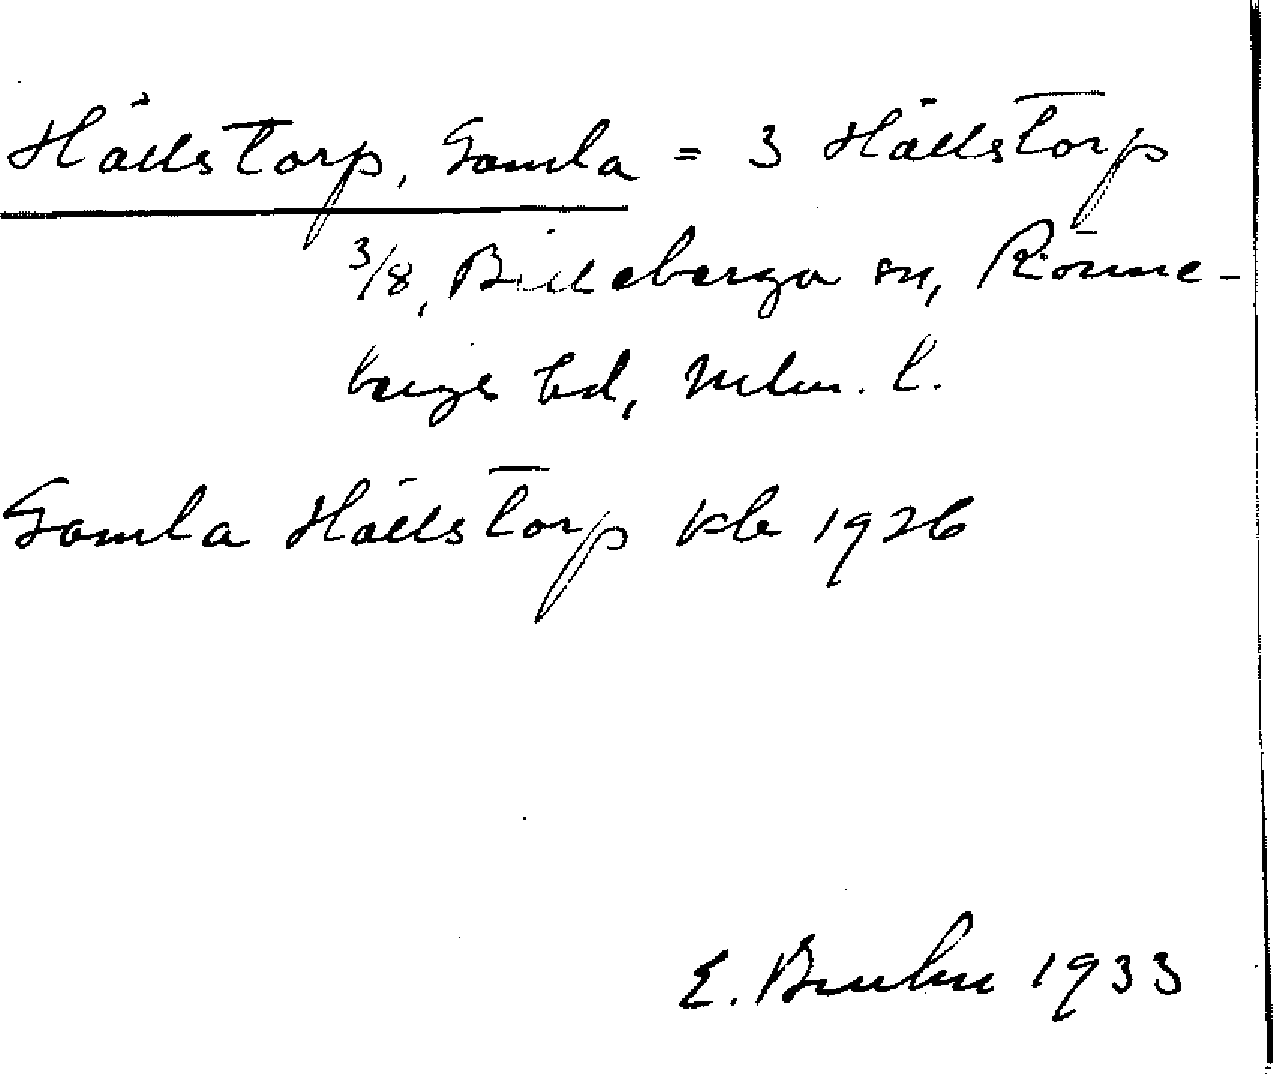 Hällstorp, Gamla = 3 Hällstorp
3/8, Billeberga sn, Rönne-
bergs hd, Mlm. l.
Gamla Hällstorp kb 1926
E. Bruhn 1933